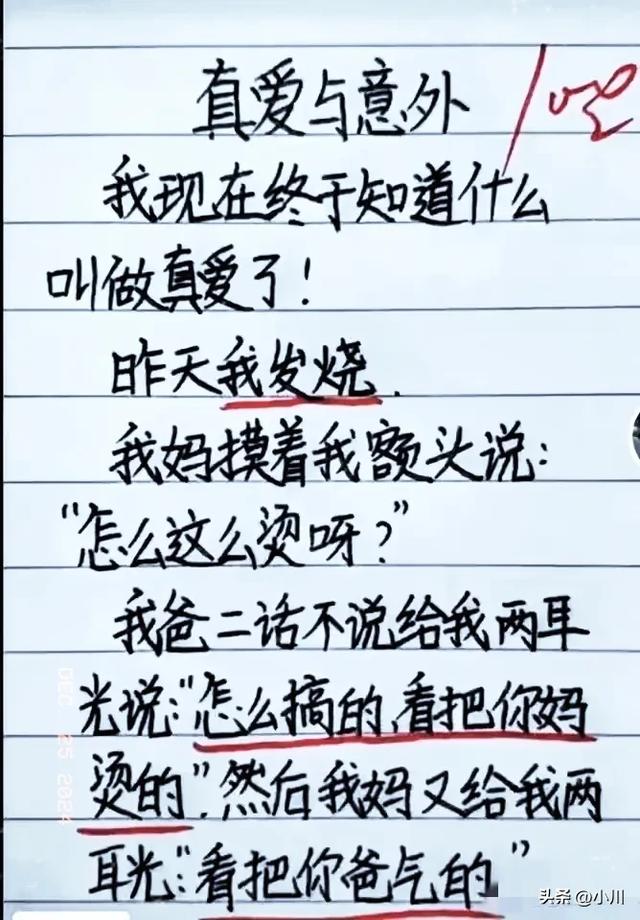 真爱与意外
我现在终于知道什么
叫做真爱了！
昨天我发烧.
我妈摸着我额头说：
“怎么这么烫呀？”
我爸二话不说给我两耳
光说：“怎么搞的，看把你妈
烫的”.然后我妈又给我两
耳光：“看把你爸气的”
DEC 25 2024
头条 @小川